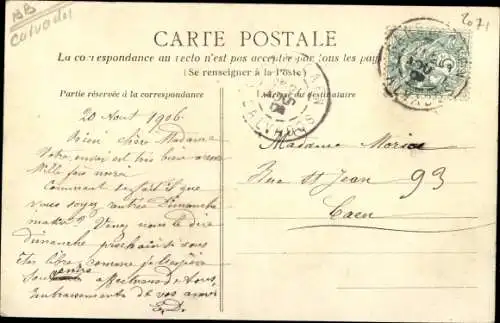 BB
Calvados
2071
CARTE POSTALE
La correspondance au recto n'est pas acceptée par tous les pays
(Se renseigner à la Poste)
Partie réservée à la correspondance
Adresse du destinataire
CAEN
CALVADOS
20 Aout 1906
Bien chère Madame
Votre envoi est très bien
Mille fois
Comment se fait il que
vous soyez Dimanche
Venez nous le dire
dimanche prochain si vous
êtes libre, comme je l'espère
affectueux à tous,
Embrassements de vos amis
E.D.
Madame
Rue St Jean 93
Caen